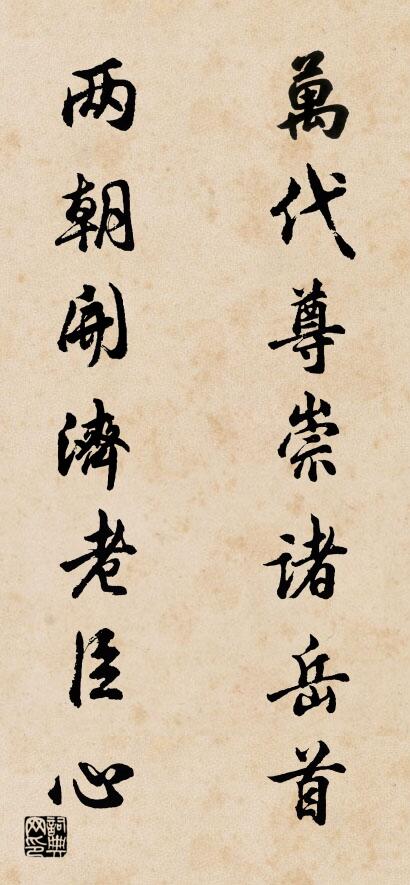 萬代尊崇諸岳首
两朝開濟老臣心
詞典網印